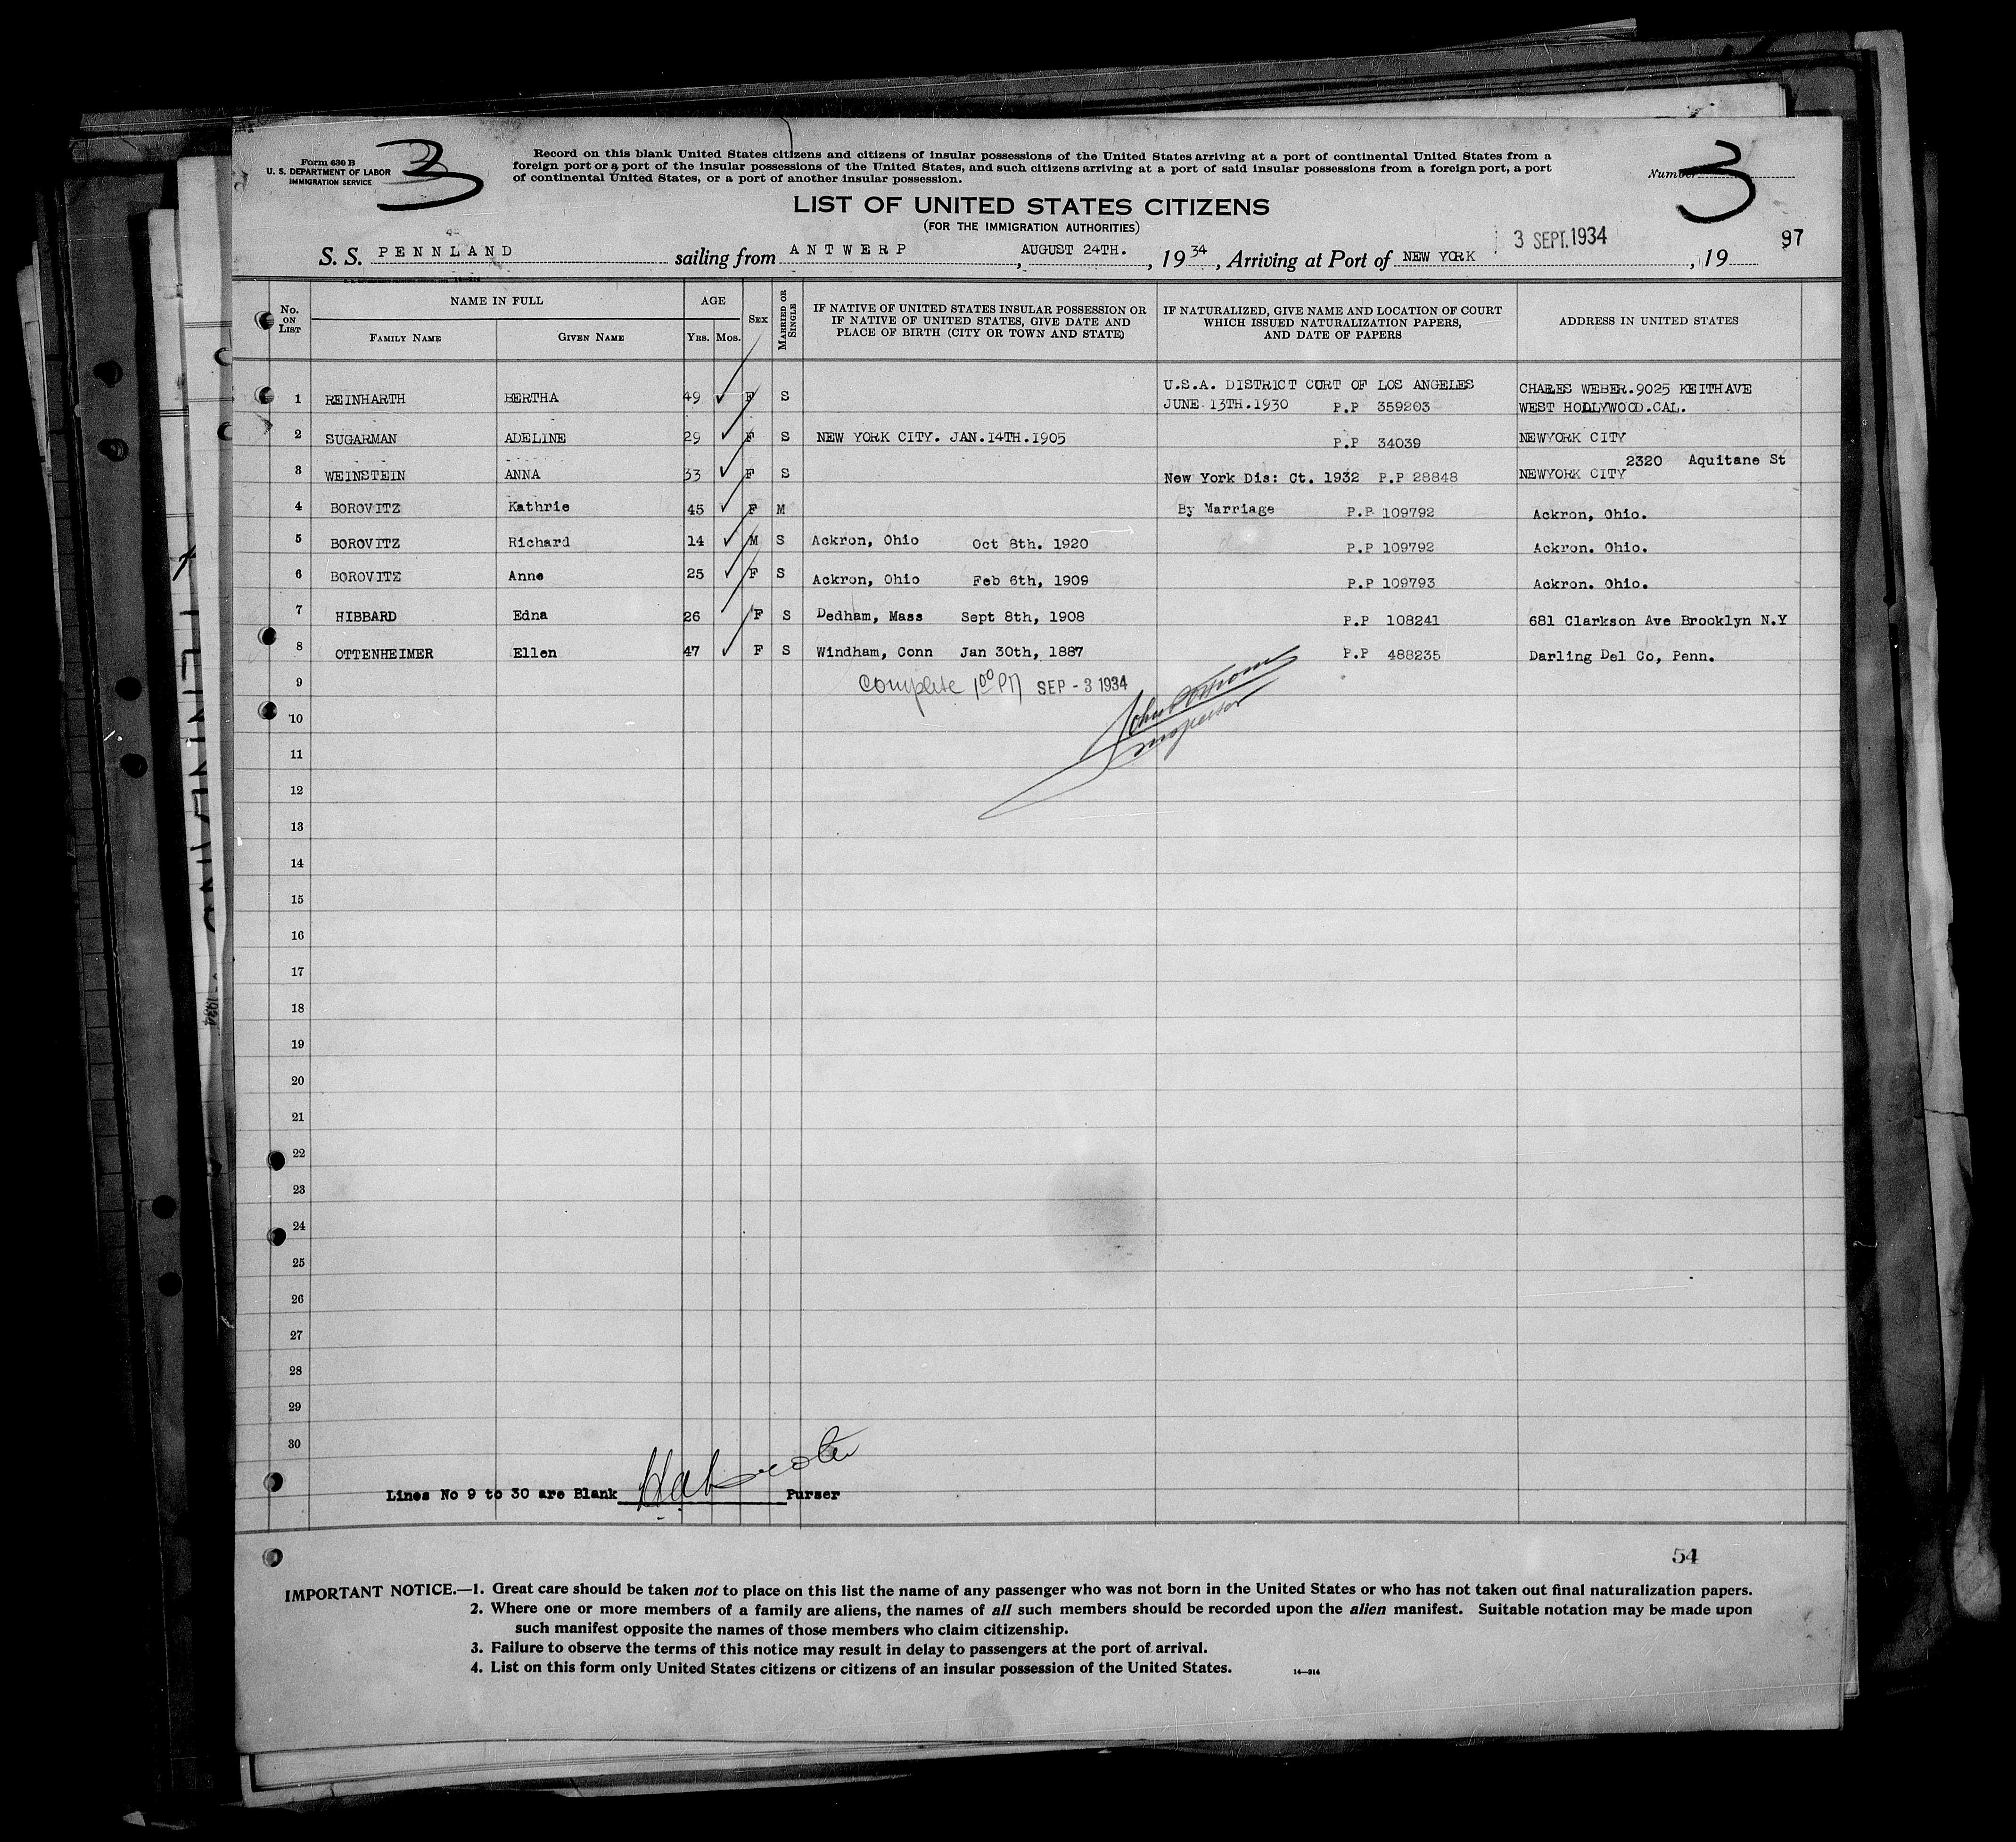 Form 630 B
U. S. DEPARTMENT OF LABOR
IMMIGRATION SERVICE
3
Record on this blank United States citizens and citizens of insular possessions of the United States arriving at a port of continental United States from a
foreign port or a port of the insular possessions of the United States, and such citizens arriving at a port of said insular possessions from a foreign port, a port
of continental United States, or a port of another insular possession.
Number 3
LIST OF UNITED STATES CITIZENS
(FOR THE IMMIGRATION AUTHORITIES)
S. S. PENNLAND sailing from ANTWERP, AUGUST 24TH., 1934, Arriving at Port of NEW YORK 3 SEPT. 1934, 19 97
No. ON LIST NAME IN FULL FAMILY NAME GIVEN NAME AGE YRS. MOS. SEX MARRIED OR SINGLE IF NATIVE OF UNITED STATES INSULAR POSSESSION OR IF NATIVE OF UNITED STATES, GIVE DATE AND PLACE OF BIRTH (CITY OR TOWN AND STATE) IF NATURALIZED, GIVE NAME AND LOCATION OF COURT WHICH ISSUED NATURALIZATION PAPERS, AND DATE OF PAPERS ADDRESS IN UNITED STATES
1 REINHARTH BERTHA 49 F S U.S.A. DISTRICT CURT OF LOS ANGELES CHARLES WEBER.9025 KEITHAVE
JUNE 13TH.1930 P.P 359203 WEST HOLLYWOOD.CAL.
2 SUGARMAN ADELINE 29 F S NEW YORK CITY. JAN.14TH.1905 P.P 34039 NEWYORK CITY
2320 Aquitane St
3 WEINSTEIN ANNA 33 F S New York Dis: Ct. 1932 P.P 28848 NEWYORK CITY
4 BOROVITZ Kathrie 45 F M By Marriage P.P 109792 Ackron, Ohio.
5 BOROVITZ Richard 14 M S Ackron, Ohio Oct 8th. 1920 P.P 109792 Ackron. Ohio.
6 BOROVITZ Anne 25 F S Ackron, Ohio Feb 6th, 1909 P.P 109793 Ackron. Ohio.
7 HIBBARD Edna 26 F S Dedham, Mass Sept 8th, 1908 P.P 108241 681 Clarkson Ave Brooklyn N.Y
8 OTTENHEIMER Ellen 47 F S Windham, Conn Jan 30th, 1887 P.P 488235 Darling Del Co, Penn.
9 Complete 100 PM SEP - 3 1934
10 Inspector
11
12
13
14
15
16
17
18
19
20
21
22
23
24
25
26
27
28
29
30
Lines No 9 to 30 are Blank Purser
54
IMPORTANT NOTICE.—1. Great care should be taken not to place on this list the name of any passenger who was not born in the United States or who has not taken out final naturalization papers.
2. Where one or more members of a family are aliens, the names of all such members should be recorded upon the alien manifest. Suitable notation may be made upon
such manifest opposite the names of those members who claim citizenship.
3. Failure to observe the terms of this notice may result in delay to passengers at the port of arrival.
4. List on this form only United States citizens or citizens of an insular possession of the United States. 14—314